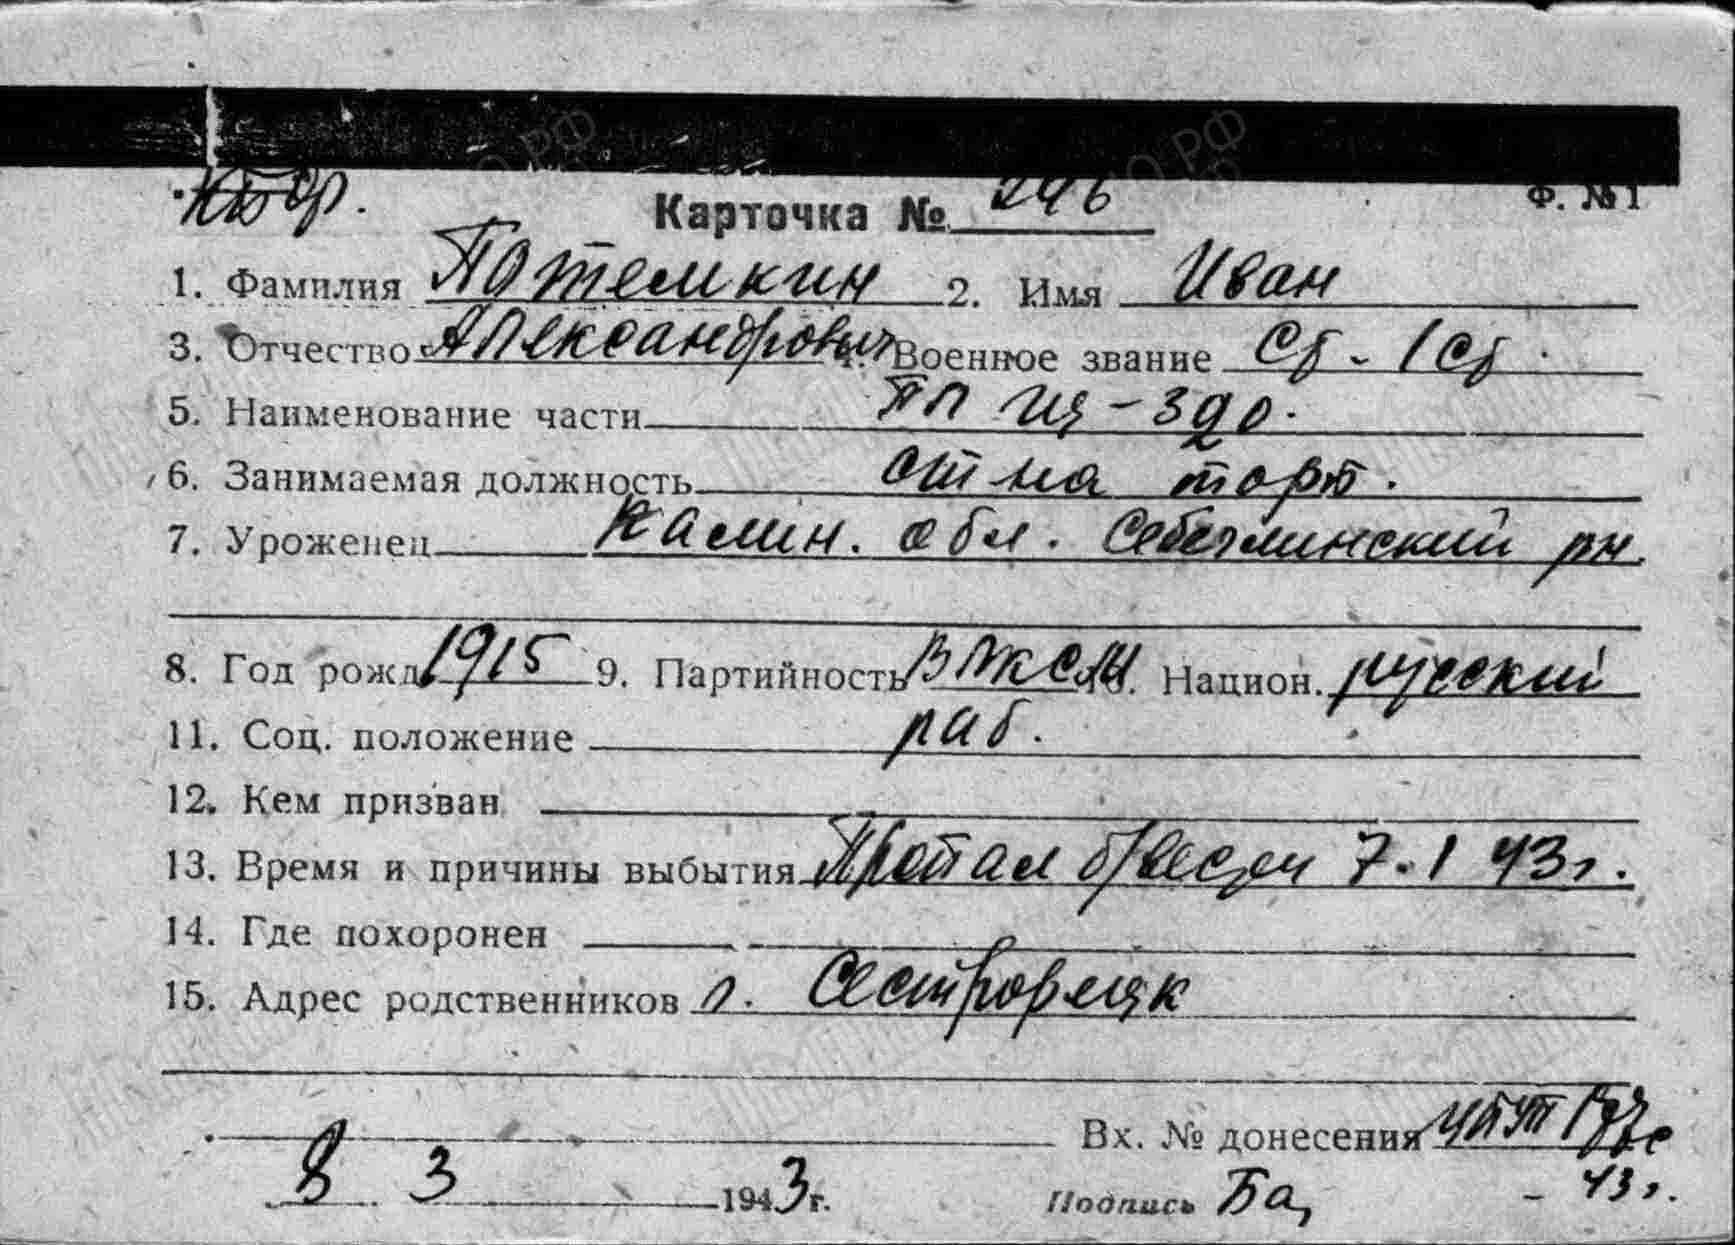 Карточка № 246 Ф. № 1
1. Фамилия Потемкин 2. Имя Иван
3. Отчество Александрович 4. Военное звание
5. Наименование части ПП
6. Занимаемая должность
7. Уроженец Калин. обл. рн.
8. Год рожд. 1915 9. Партийность ВЛКСМ 10. Национ. русский
11. Соц. положение раб.
12. Кем призван
13. Время и причины выбытия Пропал б/вести 7.1 43 г.
14. Где похоронен
15. Адрес родственников г. Сестрорецк
Вх. № донесения
8 3 1943 г. Подпись Ба, - 43 г.